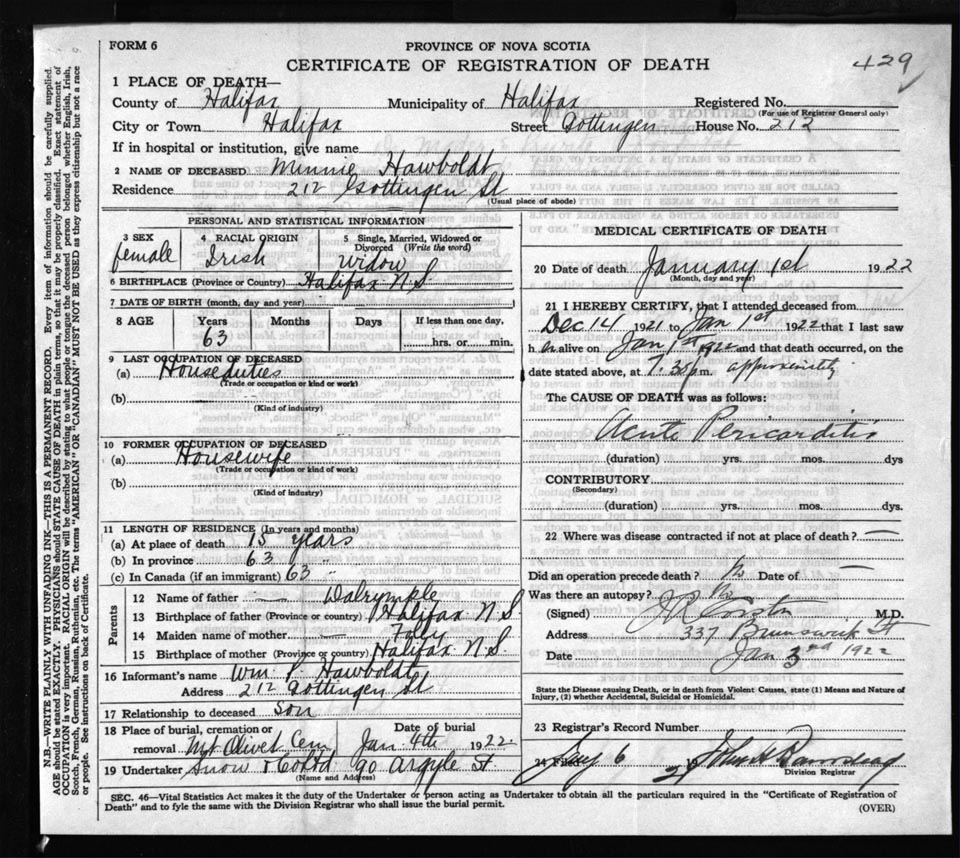 FORM 6
PROVINCE OF NOVA SCOTIA
CERTIFICATE OF REGISTRATION OF DEATH
429
1 PLACE OF DEATH—
County of Halifax Municipality of Halifax Registered No.
(For use of Registrar General only)
City or Town Halifax Street Gottingen House No. 212
If in hospital or institution, give name
2 NAME OF DECEASED Minnie Hawboldt
Residence 212 Gottingen St
(Usual place of abode)
PERSONAL AND STATISTICAL INFORMATION
3 SEX female
4 RACIAL ORIGIN Irish
5 Single, Married, Widowed or Divorced (Write the word) Widow
6 BIRTHPLACE (Province or Country) Halifax N.S.
7 DATE OF BIRTH (month, day and year)
8 AGE Years 63 Months Days If less than one day. hrs. or min.
9 LAST OCCUPATION OF DECEASED
(a) Houseduties
(Trade or occupation or kind or work)
(b)
(Kind of industry)
10 FORMER OCCUPATION OF DECEASED
(a) Housewife
(Trade or occupation or kind of work)
(b)
(Kind of industry)
11 LENGTH OF RESIDENCE (In years and months)
(a) At place of death 15 years
(b) In province 63 "
(c) In Canada (if an immigrant) 63 "
Parents
12 Name of father — Dalrymple
13 Birthplace of father (Province or country) Halifax N.S.
14 Maiden name of mother —
15 Birthplace of mother (Province or country) Halifax N.S.
16 Informant's name Wm P. Hawboldt
Address 212 Gottingen St
17 Relationship to deceased Son
18 Place of burial, cremation or removal Mt Olivet Cem. Date of burial Jan. 4th 1922.
19 Undertaker Snow & Co Ltd 90 Argyle St.
(Name and Address)
MEDICAL CERTIFICATE OF DEATH
20 Date of death January 1st 1922
(Month, day and year)
21 I HEREBY CERTIFY, that I attended deceased from
Dec 14 1921 to Jan 1st 1922 that I last saw
h er alive on Jan 1st 1922 and that death occurred, on the
date stated above, at 7.30 p.m.
The CAUSE OF DEATH was as follows:
Acute Pericarditis
(duration) yrs. mos. dys
CONTRIBUTORY
(Secondary)
(duration) yrs. mos. dys.
22 Where was disease contracted if not at place of death? —
Did an operation precede death? No Date of —
Was there an autopsy? No
(Signed) M.D.
Address 337 Brunswick St
Date Jan 3rd 1922
State the Disease causing Death, or in death from Violent Causes, state (1) Means and Nature of
Injury, (2) whether Accidental, Suicidal or Homicidal.
23 Registrar's Record Number
24 Filed 6 John H
Division Registrar
SEC. 46—Vital Statistics Act makes it the duty of the Undertaker or person acting as Undertaker to obtain all the particulars required in the "Certificate of Registration of
Death" and to fyle the same with the Division Registrar who shall issue the burial permit.
(OVER)
N.B.—WRITE PLAINLY, WITH UNFADING INK—THIS IS A PERMANENT RECORD. Every item of information should be carefully supplied.
AGE should be stated EXACTLY. PHYSICIANS should STATE CAUSE OF DEATH in plain terms, so that it may be properly classified. Exact statement of
OCCUPATION is very important. RACIAL ORIGIN will be described by stating to what people or tongue the deceased person belonged whether English, Irish,
Scotch, French, German, Russian, Ruthenian, etc. The terms "AMERICAN" OR "CANADIAN" MUST NOT BE USED as they express citizenship but not a race
or people. See instructions on back of Certificate.